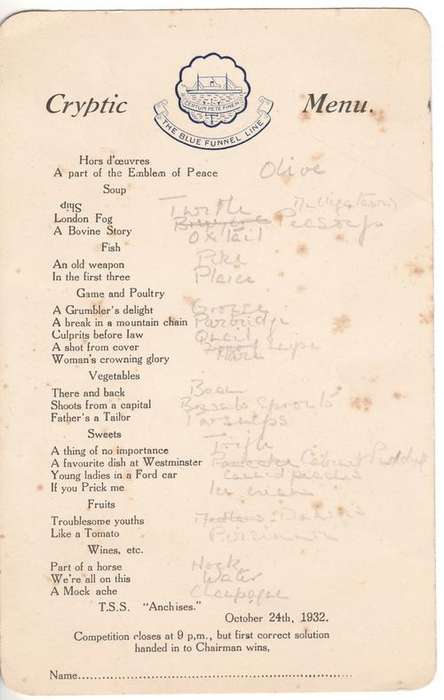 Cryptic Menu.
CERTUM PETE FINEM
THE BLUE FUNNEL LINE
Hors d'œuvres
A part of the Emblem of Peace Olive
Soup
Ship Turtle
London Fog Pea Soup
A Bovine Story Ox Tail
Fish
An old weapon Pike
In the first three Plaice
Game and Poultry
A Grumbler's delight Grouse
A break in a mountain chain Partridge
Culprits before law Quail
A shot from cover Snipe
Woman's crowning glory Hare
Vegetables
There and back Bean
Shoots from a capital Brussels Sprouts
Father's a Tailor Parsnips
Sweets
A thing of no importance Trifle
A favourite dish at Westminster Cabinet Pudding
Young ladies in a Ford car Canned peaches
If you Prick me Ice cream
Fruits
Troublesome youths Damsons
Like a Tomato Persimmon
Wines, etc.
Part of a horse Hock
We're all on this Water
A Mock ache Champagne
T.S.S. "Anchises."
October 24th, 1932.
Competition closes at 9 p.m., but first correct solution
handed in to Chairman wins,
Name